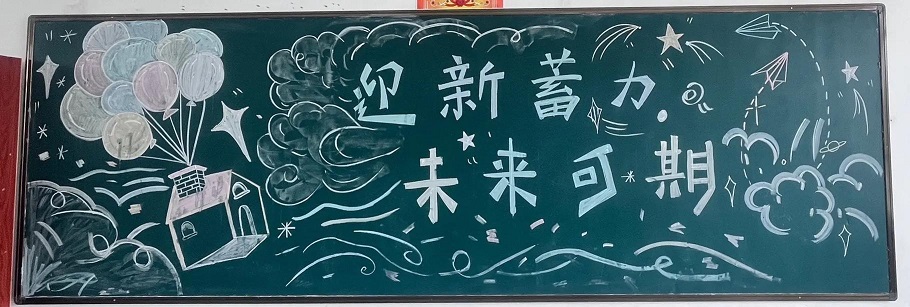 迎新蓄力
未来可期